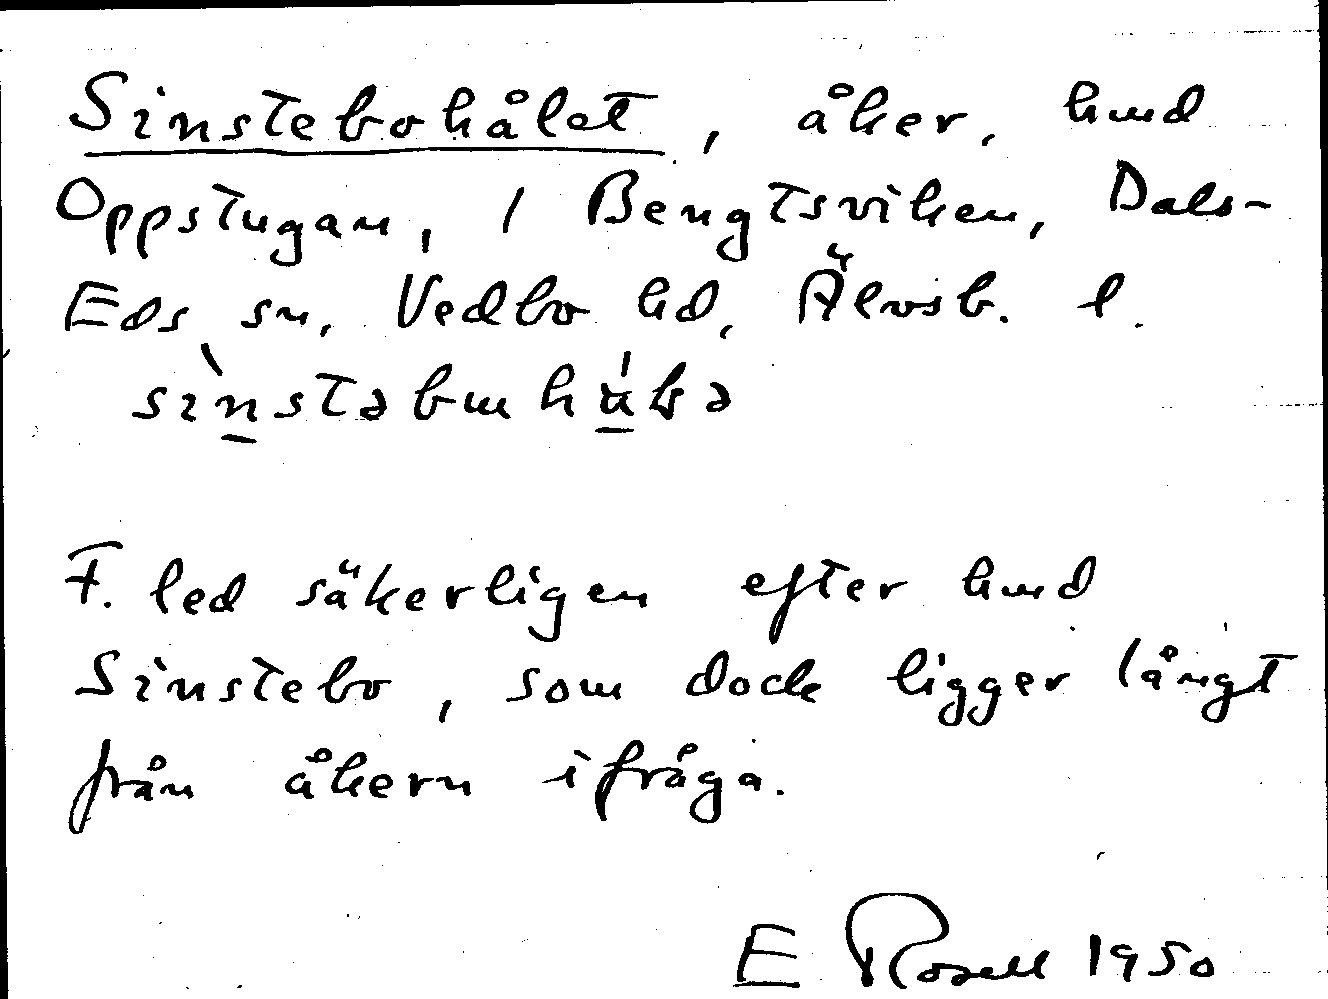 Sinstebohålet, åker, hmd
Oppstugan, 1 Bengtsviken, Dals-
Eds sn, Vedbo hd, Älvsb. l.
F. led säkerligen efter hmd
Sinstebo, som dock ligger långt
från åkern ifråga.
E Rosell 1950